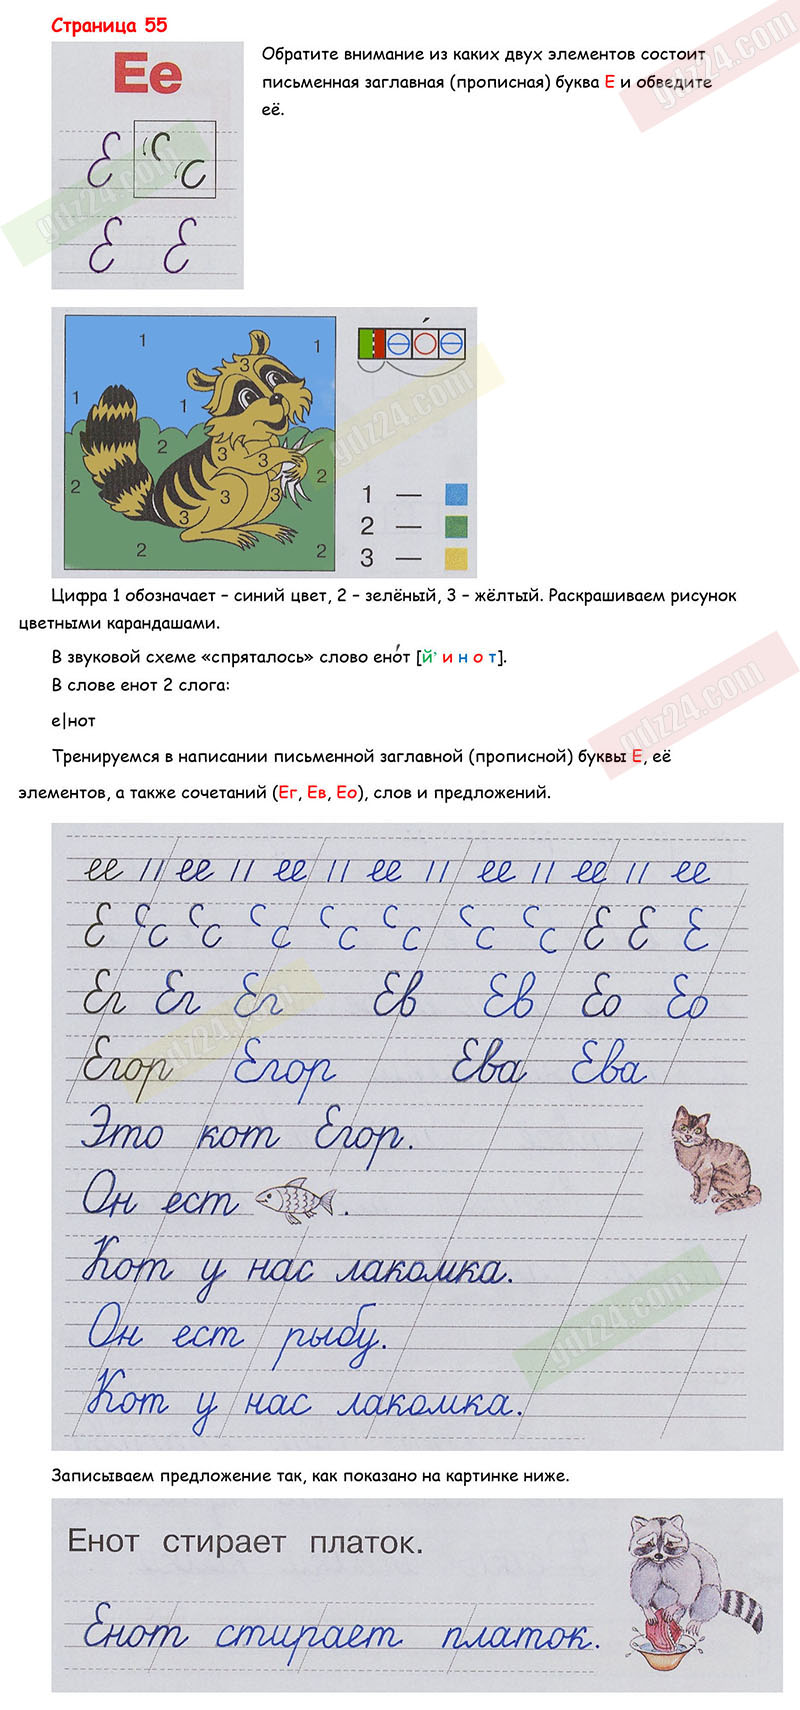 Страница 55
Ее
Обратите внимание из каких двух элементов состоит
письменная заглавная (прописная) буква Е и обведите
её.
Е
Е Е
gdz24.com
gdz24.com
1 1
3
1 1
2
3 3
2 2
3 3
3
2 2
1 —
2 —
3 —
gdz24.com
Цифра 1 обозначает – синий цвет, 2 – зелёный, 3 – жёлтый. Раскрашиваем рисунок
цветными карандашами.
В звуковой схеме «спряталось» слово ено́т [й’ и н о т].
В слове енот 2 слога:
е|нот
gdz24.com
Тренируемся в написании письменной заглавной (прописной) буквы Е, её
элементов, а также сочетаний (Ег, Ев, Ео), слов и предложений.
ее ее ее ее ее ее ее
Е Е Е Е
Ег Ег Ег Ев Ев Ео Ео
gdz24.com
Егор Егор Ева Ева
Это кот Егор.
Он ест .
Кот у нас лакомка.
Он ест рыбу.
gdz24.com
Кот у нас лакомка.
Записываем предложение так, как показано на картинке ниже.
Енот стирает платок.
Енот стирает платок.